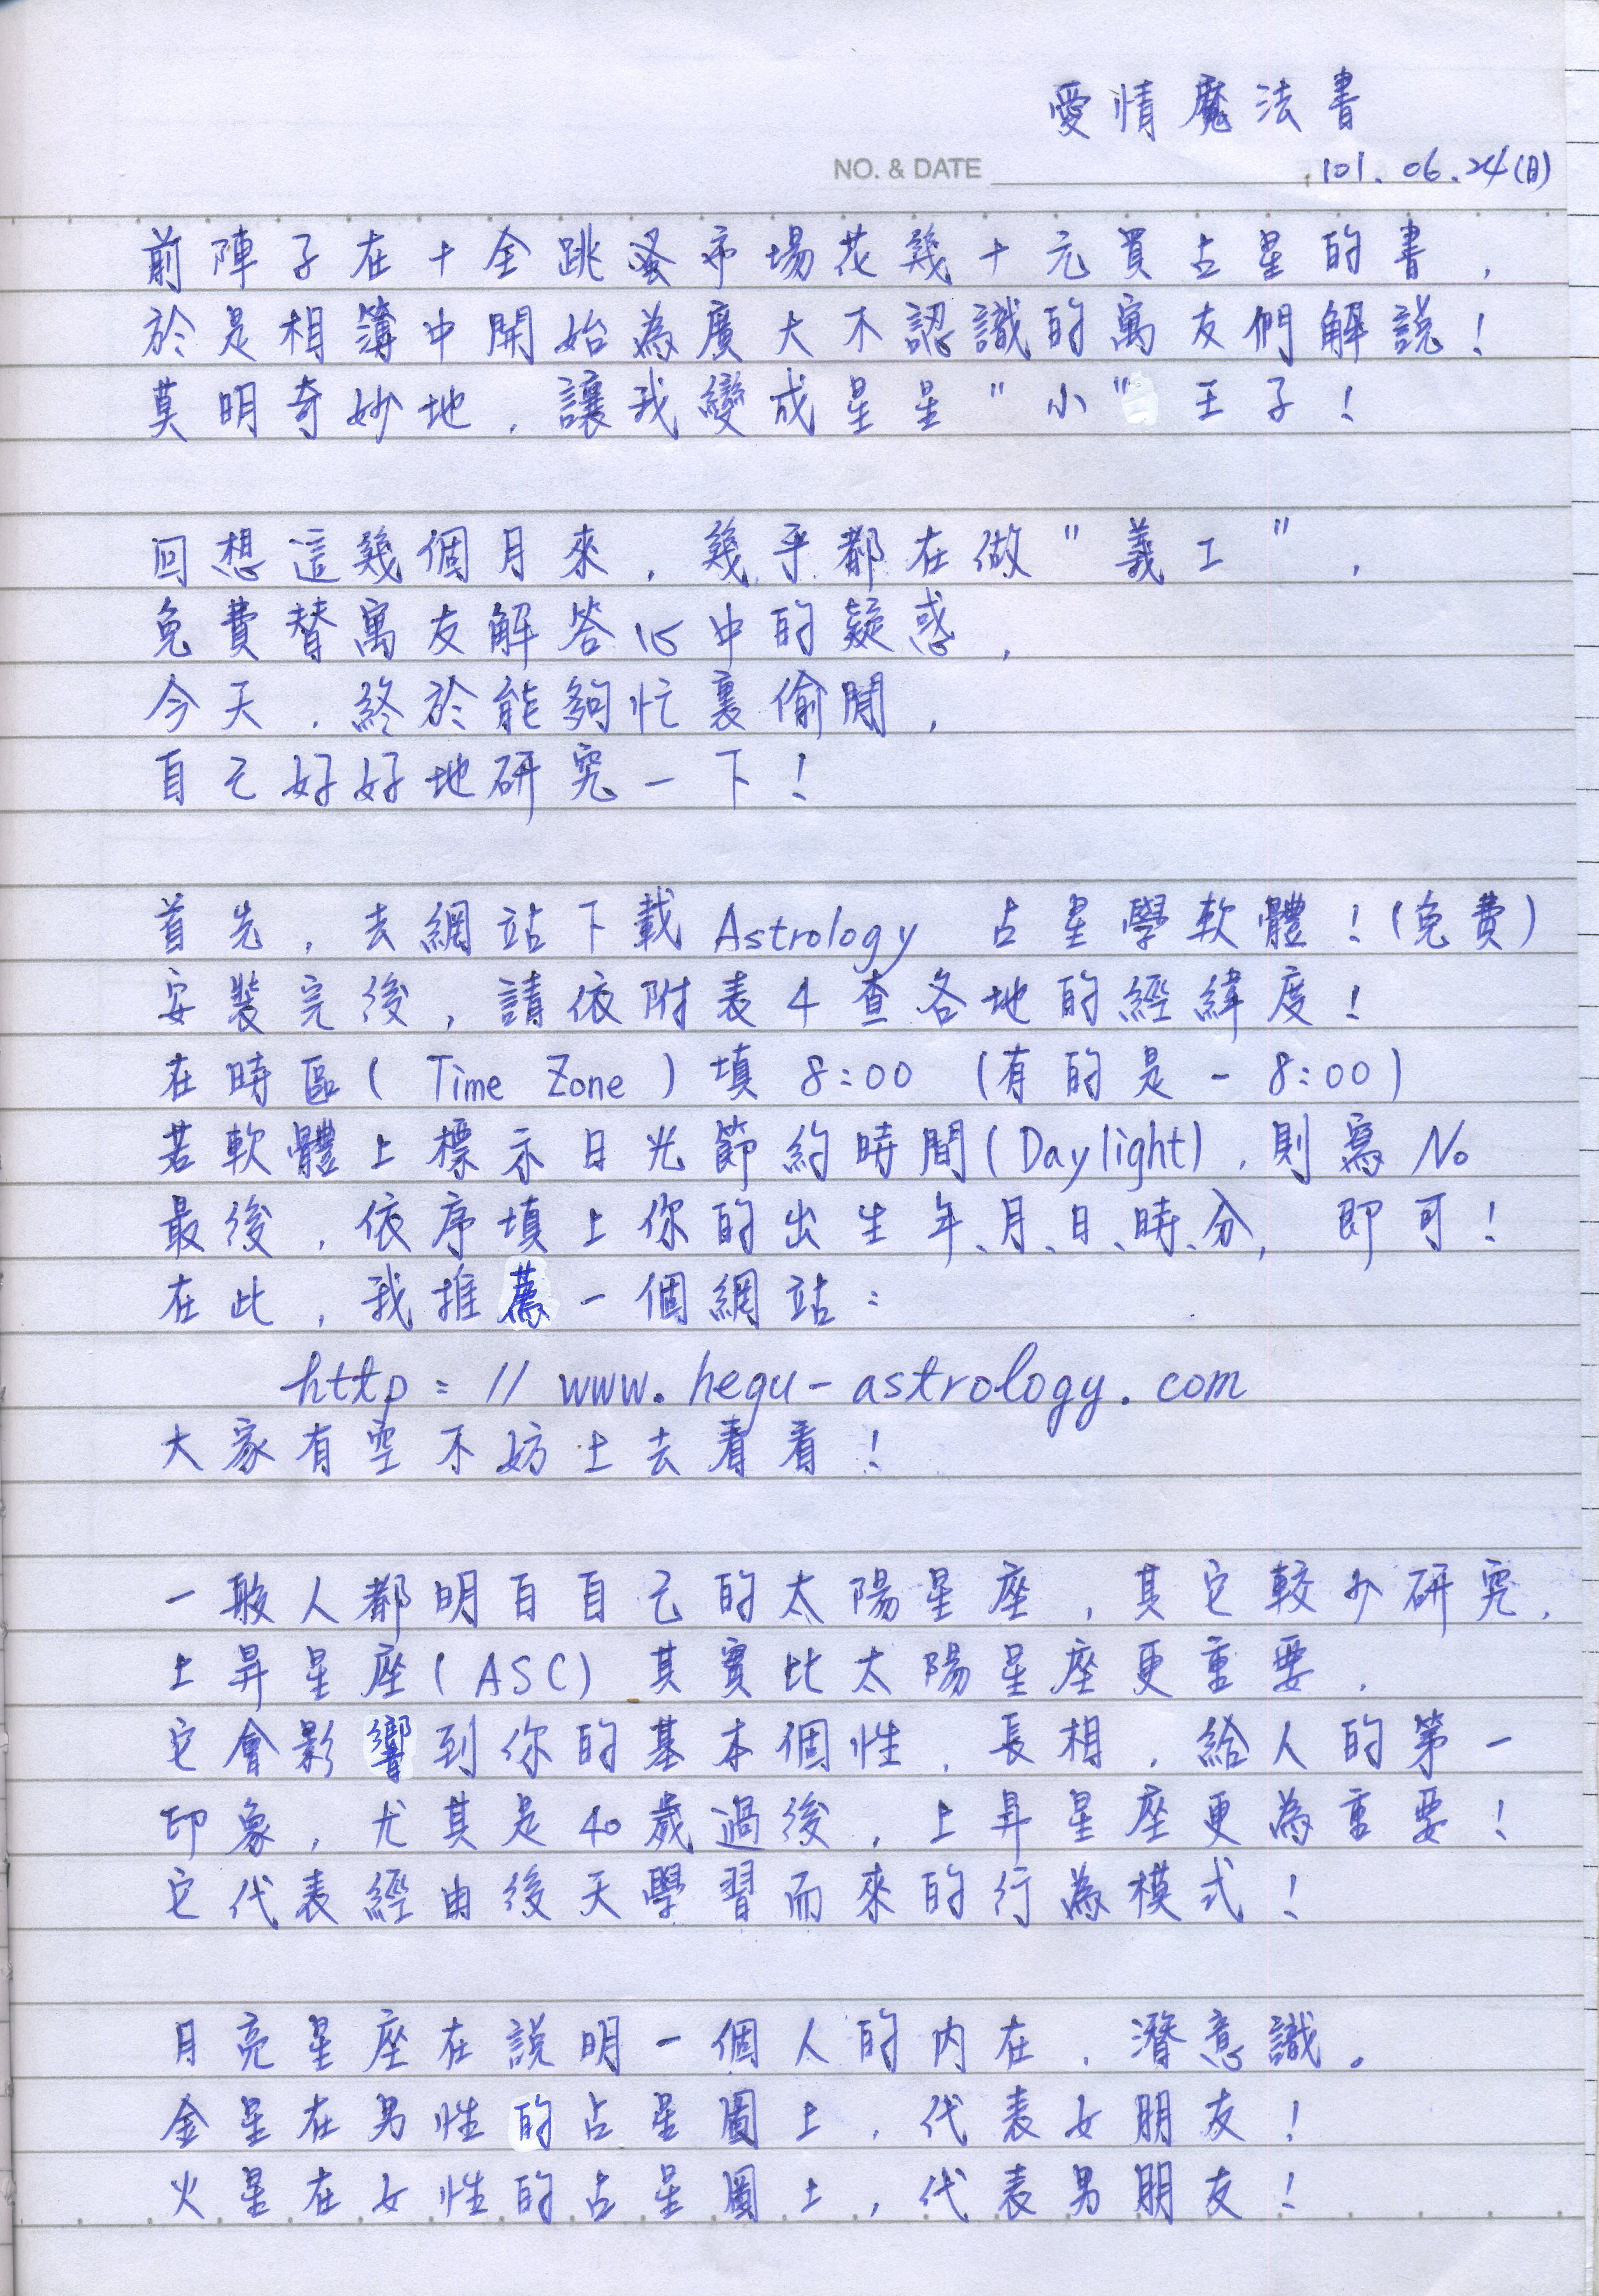 愛情魔法書
NO. & DATE 101.06.24(日)
前陣子在十全跳蚤市場花幾十元買占星的書，
於是相簿中開始為廣大不認識的寓友們解說！
莫明奇妙地，讓我變成星星"小"王子！
回想這幾個月來，幾乎都在做"義工"，
免費替寓友解答心中的疑惑，
今天，終於能夠忙裏偷閒，
自己好好地研究一下！
首先，去網站下載 Astrology 占星學軟體！(免費)
安裝完後，請依附表4查各地的經緯度！
在時區( Time Zone )填 8:00 (有的是-8:00)
若軟體上標示日光節約時間(Daylight)，則寫No
最後，依序填上你的出生年、月、日、時、分，即可！
在此，我推薦一個網站：
http://www.hegu-astrology.com
大家有空不妨上去看看！
一般人都明白自己的太陽星座，其它較少研究，
上昇星座(ASC)其實比太陽星座更重要，
它會影響到你的基本個性，長相，給人的第一
印象，尤其是40歲過後，上昇星座更為重要！
它代表經由後天學習而來的行為模式！
月亮星座在說明一個人的內在，潛意識。
金星在男性的占星圖上，代表女朋友！
火星在女性的占星圖上，代表男朋友！